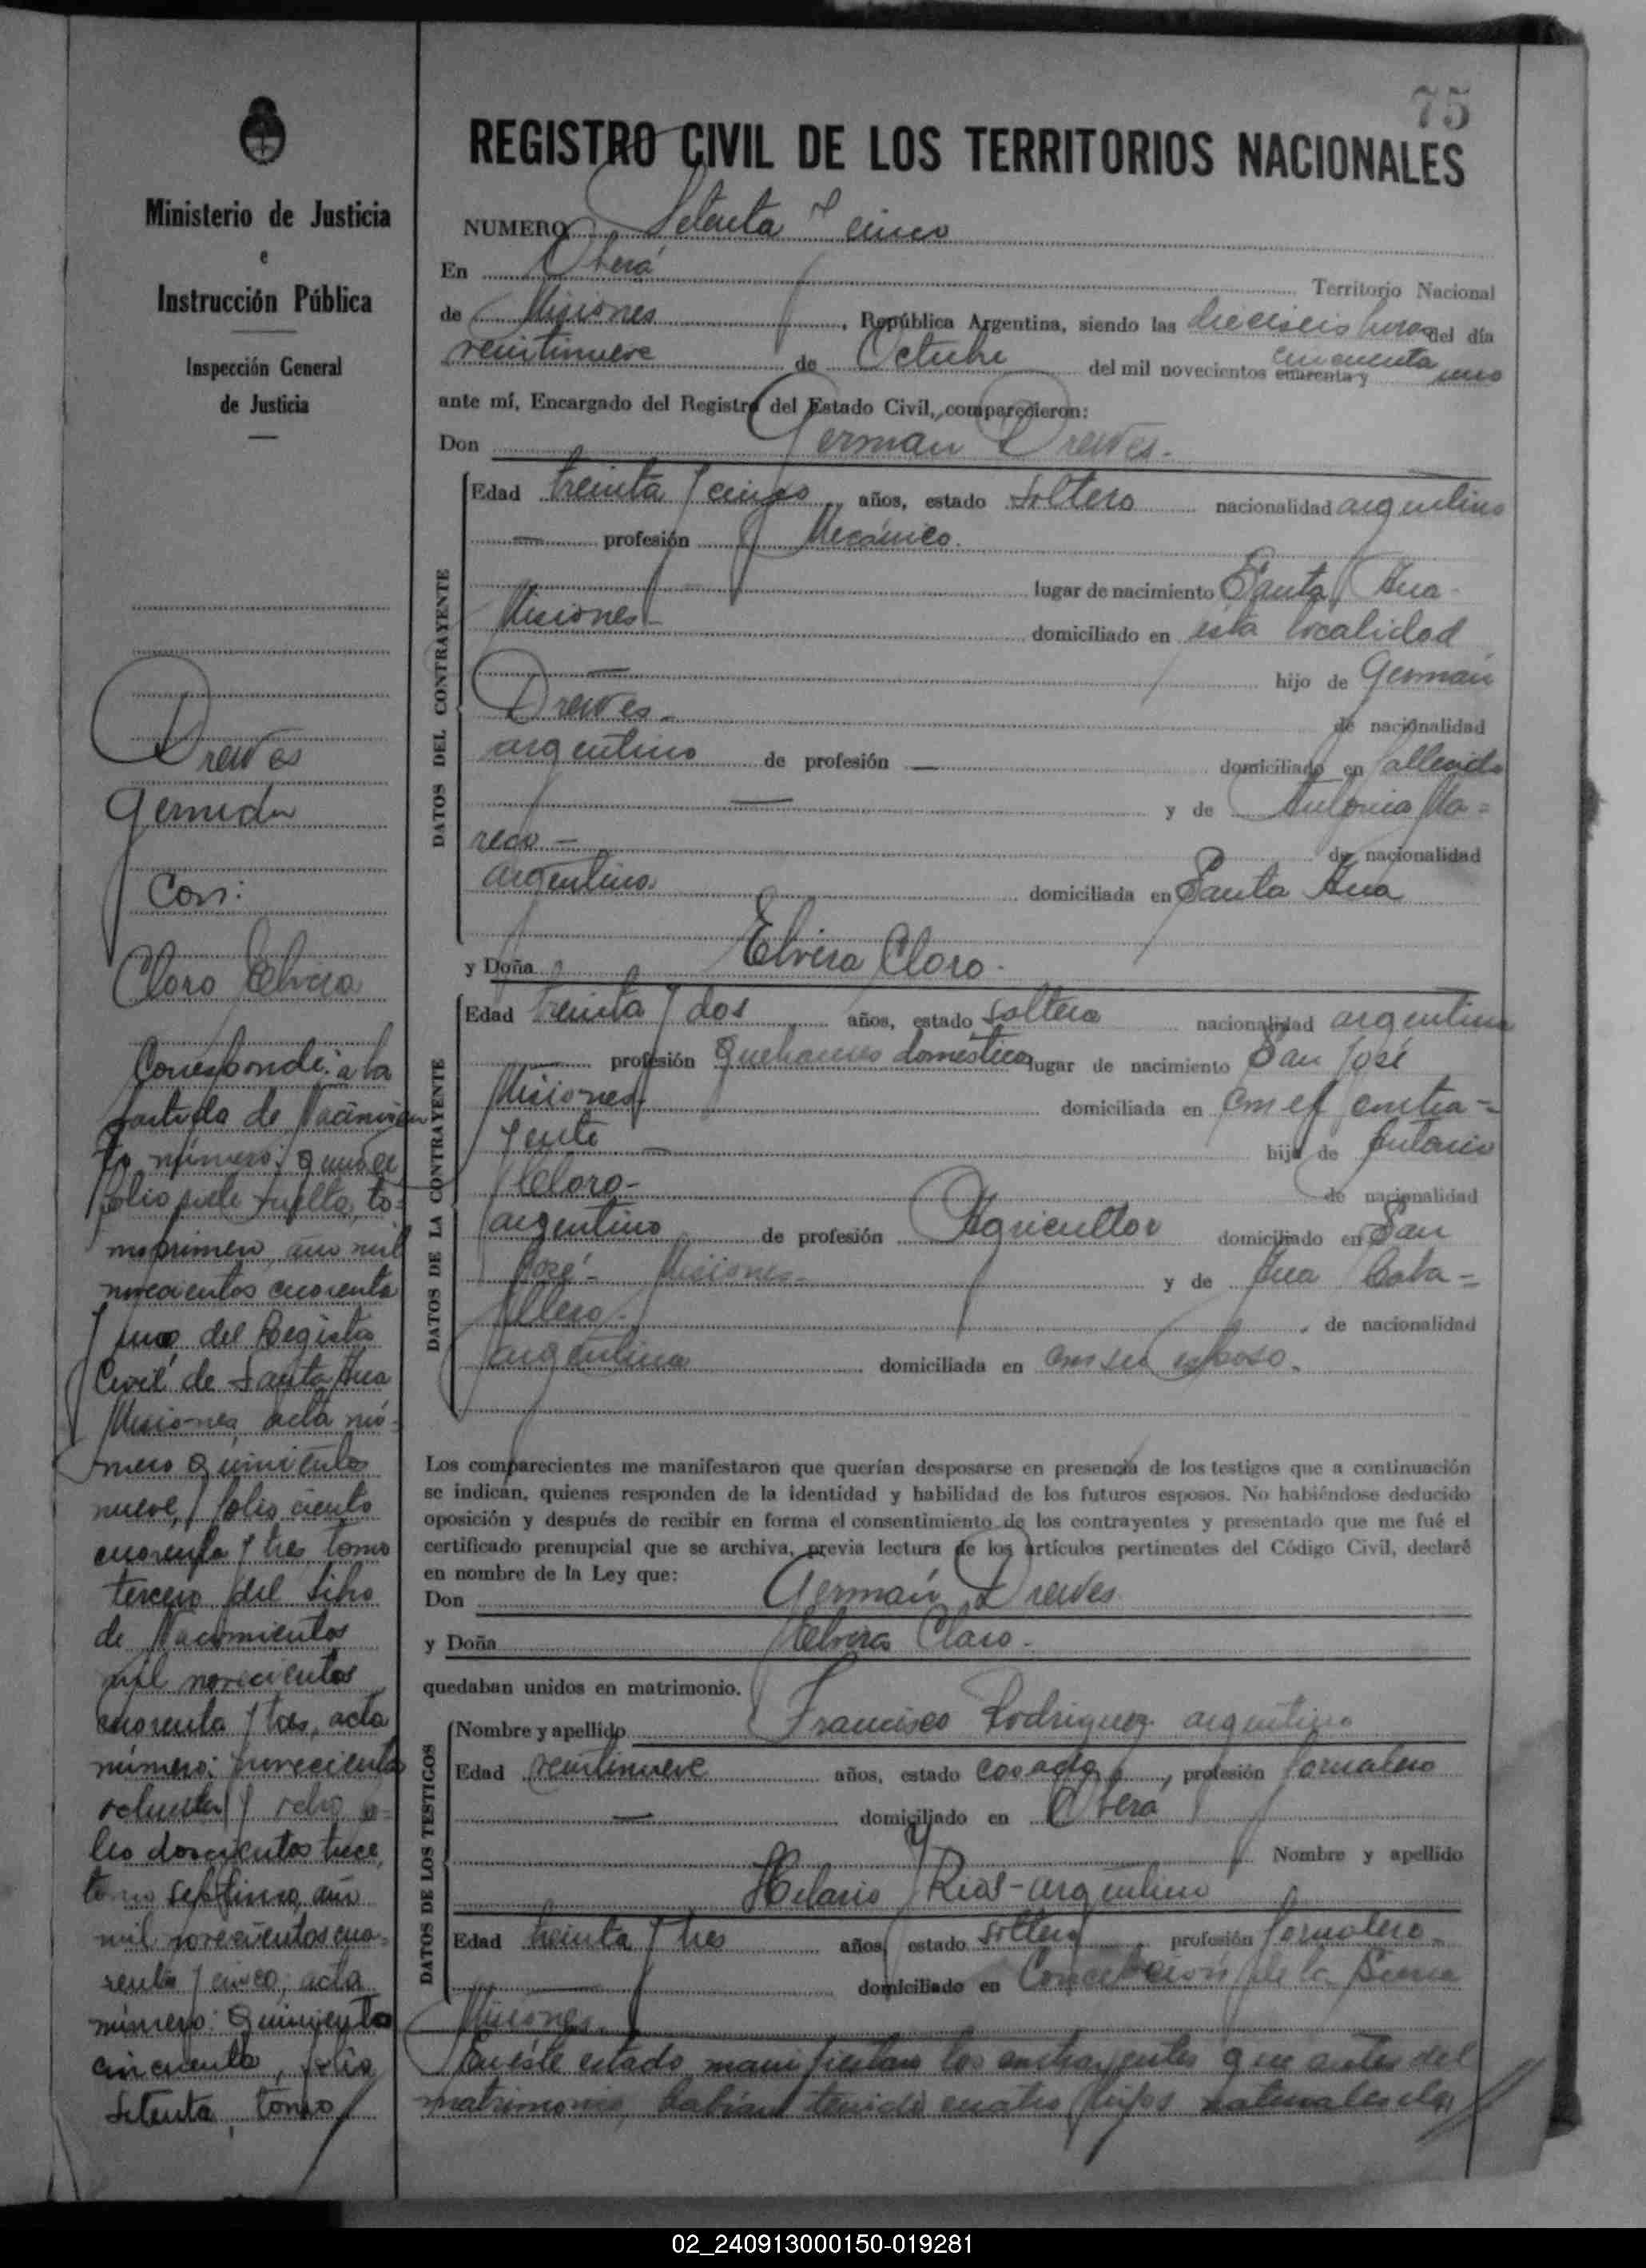 75
REGISTRO CIVIL DE LOS TERRITORIOS NACIONALES
Ministerio de Justicia
e
Instrucción Pública
Inspección General
de Justicia
Drewes
Germán
Con:
Cloro Elvira
Corresponde: a la
partida de Nacimien
to número: quince
folio siete vuelta, to-
mo primero, año mil
novecientos cuarenta
y uno, del Registro
Civil de Santa Ana
Misiones, acta nú-
mero quinientos
nueve, folio ciento
cuarenta y tres tomo
tercero del Libro
de Nacimientos
mil novecientos
cuarenta y tres, acta
número: novecientos
ochenta y ocho fo-
lio doscientos trece,
tomo septimo, año
mil novecientos cua-
renta y cinco, acta
número: Quinientos
cincuenta, folio
setenta, tomo
NUMERO Setenta y cinco
En Oberá Territorio Nacional
de Misiones, República Argentina, siendo las dieciseis horas del día
veintinueve de Octubre del mil novecientos cuarenta y cincuenta uno
ante mí, Encargado del Registro del Estado Civil, comparecieron:
Don Germán Drewes.-
DATOS DEL CONTRAYENTE
Edad treinta y cinco años, estado soltero nacionalidad argentino
— profesión Mecánico.
— lugar de nacimiento Santa Ana-
Misiones- domiciliado en esta localidad
— hijo de Germán
Drewes- de nacionalidad
argentino de profesión — domiciliado en fallecido
— y de Antonia Ma-
reco- de nacionalidad
argentina domiciliada en Santa Ana
y Doña Elvira Cloro-
DATOS DE LA CONTRAYENTE
Edad treinta y dos años, estado soltera nacionalidad argentina
— profesión Quehaceres domesticos lugar de nacimiento San José
Misiones- domiciliada en con el contra-
yente — hija de Antonio
Cloro- de nacionalidad
argentino de profesión Agricultor domiciliado en San
José- Misiones- y de Ana Caba-
llero-, de nacionalidad
argentina domiciliada en con su esposo.
Los comparecientes me manifestaron que querían desposarse en presencia de los testigos que a continuación
se indican, quienes responden de la identidad y habilidad de los futuros esposos. No habiéndose deducido
oposición y después de recibir en forma el consentimiento de los contrayentes y presentado que me fué el
certificado prenupcial que se archiva, previa lectura de los artículos pertinentes del Código Civil, declaré
en nombre de la Ley que:
Don Germán Drewes
y Doña Elvira Cloro-
quedaban unidos en matrimonio.
DATOS DE LOS TESTIGOS
Nombre y apellido Francisco Rodriguez argentino
Edad veintinueve años, estado casado, profesión Jornalero
— domiciliado en Oberá
y Nombre y apellido
Hilario Rios-argentino
Edad treinta y tres años, estado soltero profesión Jornalero-
domiciliado en Concepción de la Sierra
Misiones.
En éste estado manifiestan los contrayentes que antes del
matrimonio, habían tenido cuatro hijos naturales
02_240913000150-019281